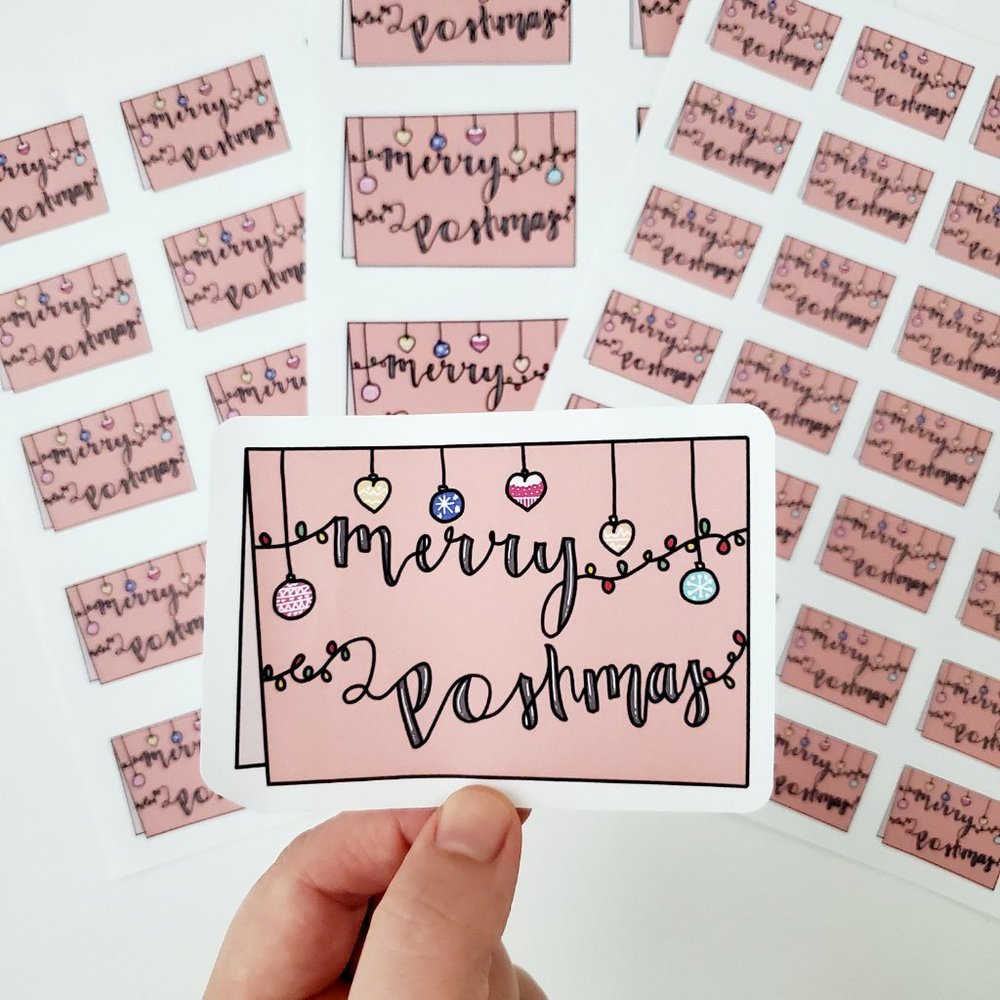 merry
Poshmas